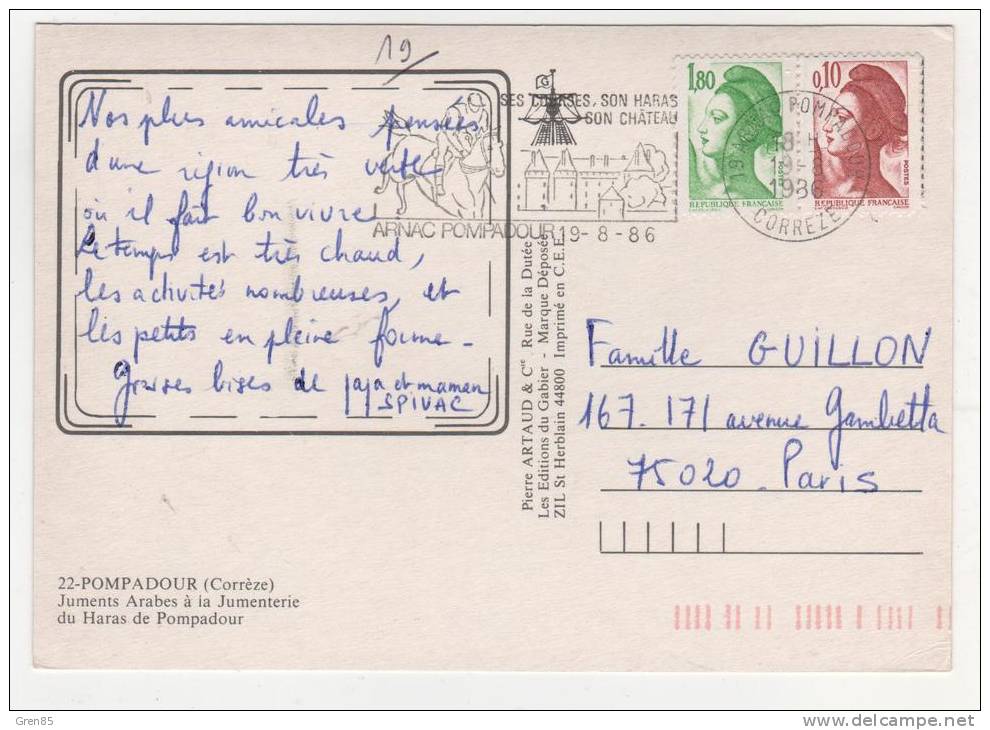 19
SES COURSES, SON HARAS
SON CHÂTEAU
ARNAC POMPADOUR 19-8-86
1,80
RÉPUBLIQUE FRANÇAISE
0,10
POSTES
RÉPUBLIQUE FRANÇAISE
19 ARNAC POMPADOUR
18 H
19-8
1986
CORREZE
Nos plus amicales pensées
d'une région très verte
où il fait bon vivre
Le temps est très chaud,
les activités nombreuses, et
les petits en pleine forme -
Grosses bises de papa et maman
SPIVAC
Pierre ARTAUD & Cie - Rue de la Dutée
Les Editions du Gabier - Marque Déposée
ZIL St Herblain 44800 Imprimé en C.E.E.
Famille GUILLON
167. 171 avenue Gambetta
75020 - Paris
22-POMPADOUR (Corrèze)
Juments Arabes à la Jumenterie
du Haras de Pompadour
Gren85
www.delcampe.net